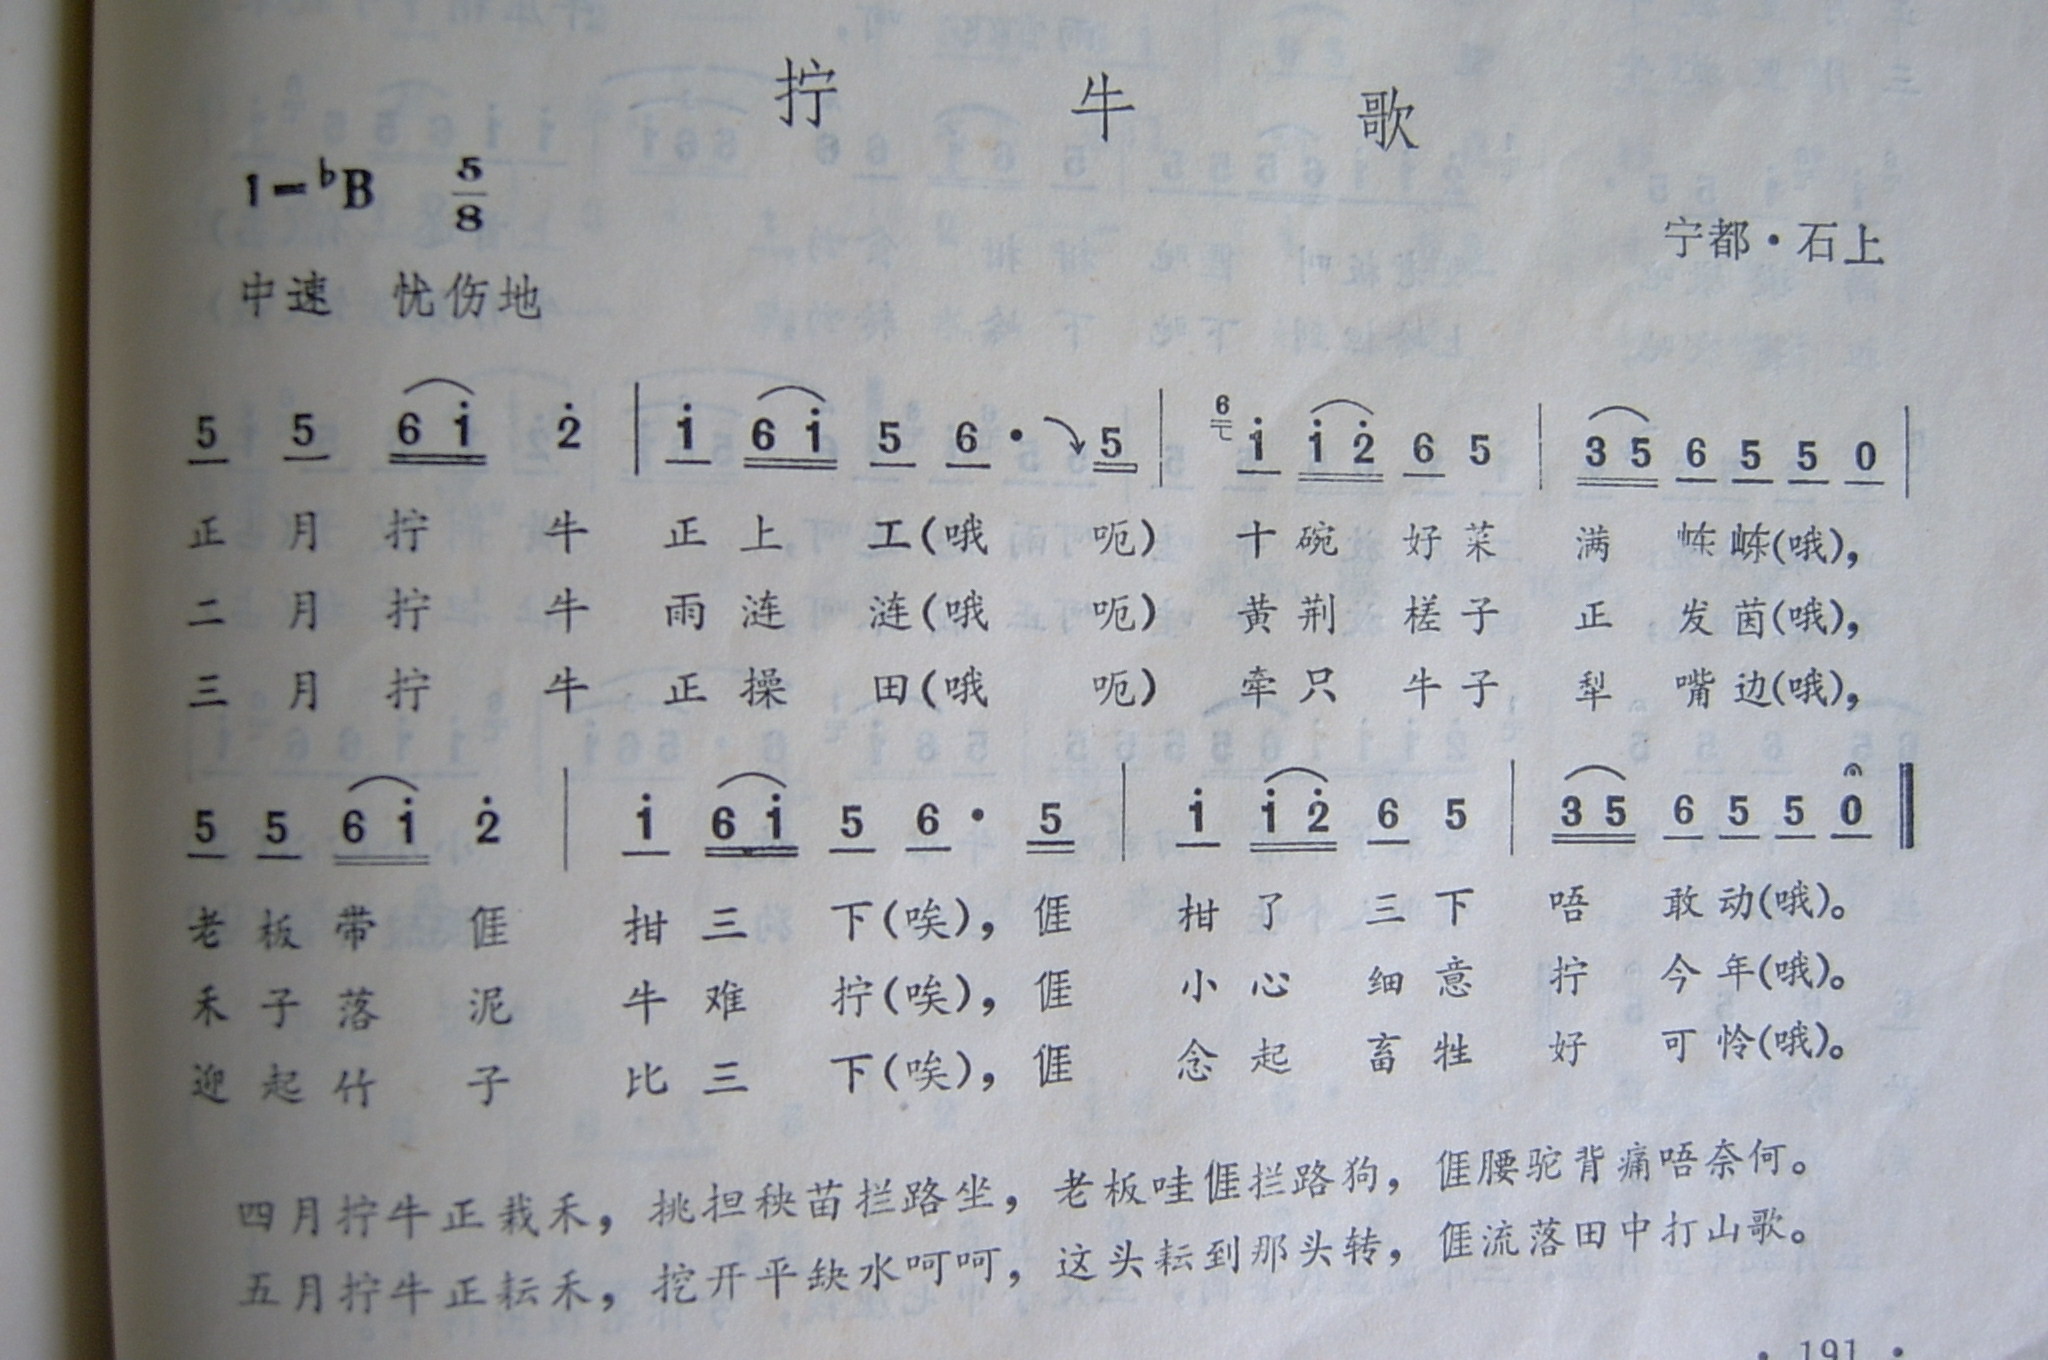 拧 牛 歌
1=♭B 5/8
宁都·石上
中速 忧伤地
5 5 6 i 2̇ | i 6 i 5 6 · 5 | 6 i i 2̇ 6 5 | 3 5 6 5 5 0 |
正 月 拧 牛 正 上 工(哦 呃) 十 碗 好 菜 满 崠(哦),
二 月 拧 牛 雨 涟 涟(哦 呃) 黄 荆 槎 子 正 发 茵(哦),
三 月 拧 牛 正 操 田(哦 呃) 牵 只 牛 子 犁 嘴 边(哦),
5 5 6 i 2̇ | i 6 i 5 6 · 5 | i i 2̇ 6 5 | 3 5 6 5 5 0
老 板 带 𠊎 拑 三 下(唉), 𠊎 拑 了 三 下 唔 敢 动(哦)。
禾 子 落 泥 牛 难 拧(唉), 𠊎 小 心 细 意 拧 今 年(哦)。
迎 起 竹 子 比 三 下(唉), 𠊎 念 起 畜 牲 好 可 怜(哦)。
四月拧牛正栽禾, 挑担秧苗拦路坐, 老板哇𠊎拦路狗, 𠊎腰驼背痛唔奈何。
五月拧牛正耘禾, 挖开平缺水呵呵, 这头耘到那头转, 𠊎流落田中打山歌。
· 191 ·